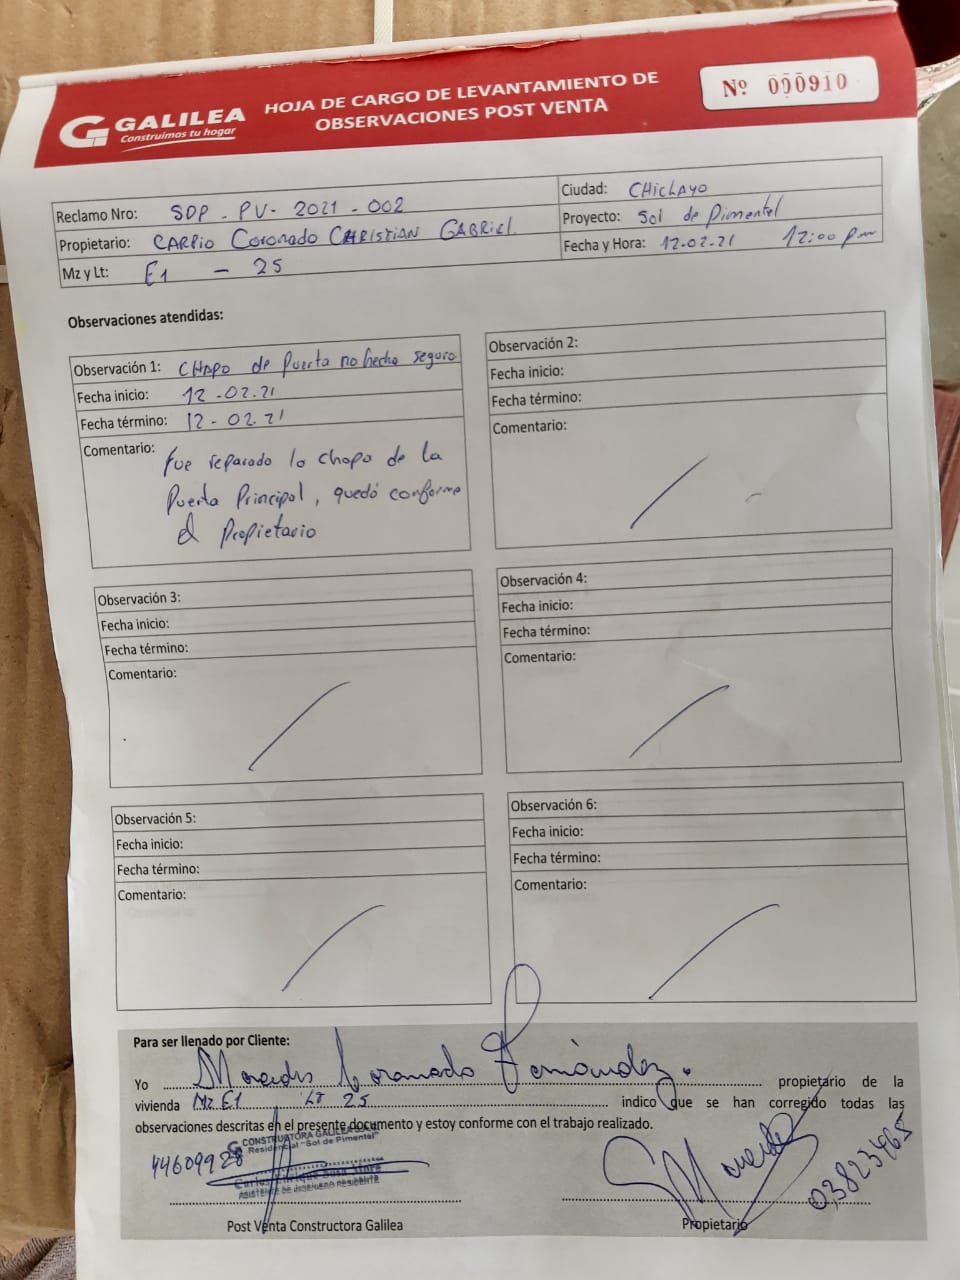 GALILEA
Construimos tu hogar
HOJA DE CARGO DE LEVANTAMIENTO DE
OBSERVACIONES POST VENTA
Nº 000910
Reclamo Nro: SDP - PV - 2021 - 002
Ciudad: CHICLAYO
Propietario: CARPIO CORONADO CHRISTIAN GABRIEL
Proyecto: Sol de Pimentel
Mz y Lt: E1 - 25
Fecha y Hora: 12.02.21 12:00 pm
Observaciones atendidas:
Observación 1: CHAPA de Puerta no hecha seguro
Fecha inicio: 12-02.21
Fecha término: 12-02.21
Comentario: fue reparado la chapa de la
Puerta Principal, quedó conforme
el Propietario
Observación 2:
Fecha inicio:
Fecha término:
Comentario:
Observación 3:
Fecha inicio:
Fecha término:
Comentario:
Observación 4:
Fecha inicio:
Fecha término:
Comentario:
Observación 5:
Fecha inicio:
Fecha término:
Comentario:
Observación 6:
Fecha inicio:
Fecha término:
Comentario:
Para ser llenado por Cliente:
Yo Mercedes Coronado Fernández. propietario de la
vivienda Mz E1 Lt 25 indico que se han corregido todas las
observaciones descritas en el presente documento y estoy conforme con el trabajo realizado.
CONSTRUCTORA GALILEA
Residencial "Sol de Pimentel"
44609928
ASISTENTE DE INGENIERO RESIDENTE
Post Venta Constructora Galilea
Propietario
03823465